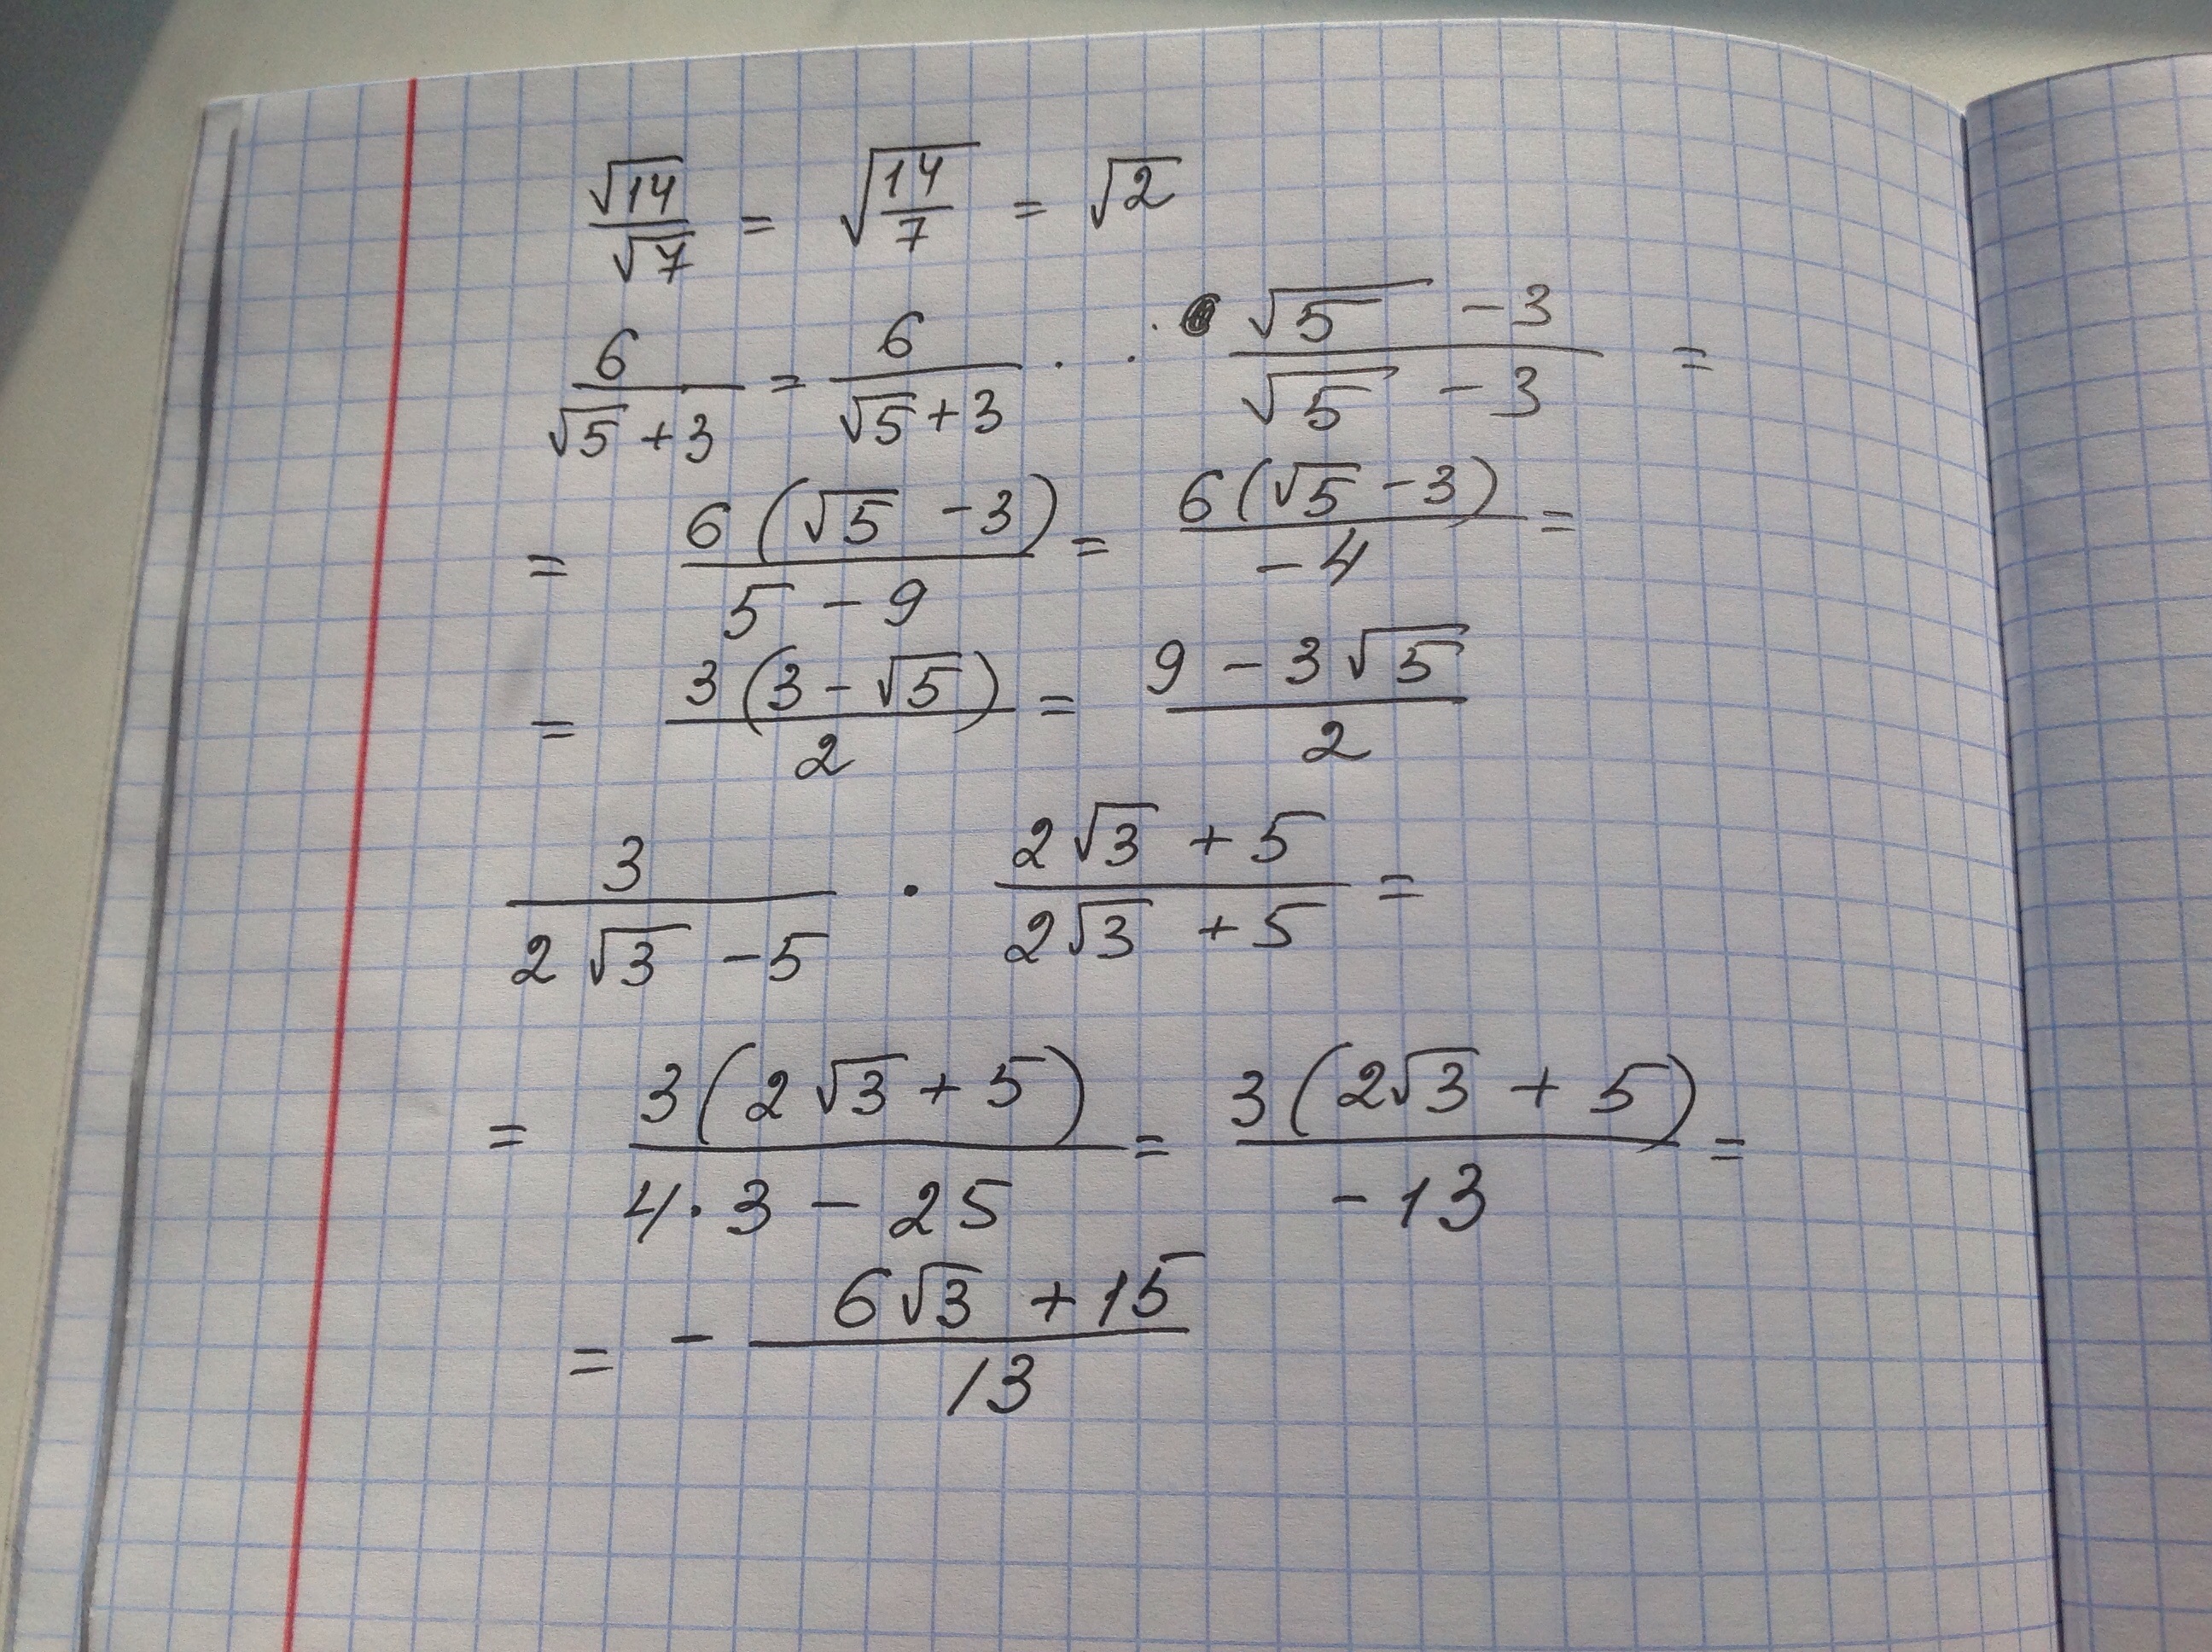 √14/√7 = √(14/7) = √2
6/(√5 + 3) = 6/(√5 + 3) · · (√5 - 3)/(√5 - 3) =
= 6(√5 - 3)/(5 - 9) = 6(√5 - 3)/(-4) =
= 3(3 - √5)/2 = (9 - 3√5)/2
3/(2√3 - 5) · (2√3 + 5)/(2√3 + 5) =
= 3(2√3 + 5)/(4·3 - 25) = 3(2√3 + 5)/(-13) =
= - (6√3 + 15)/13